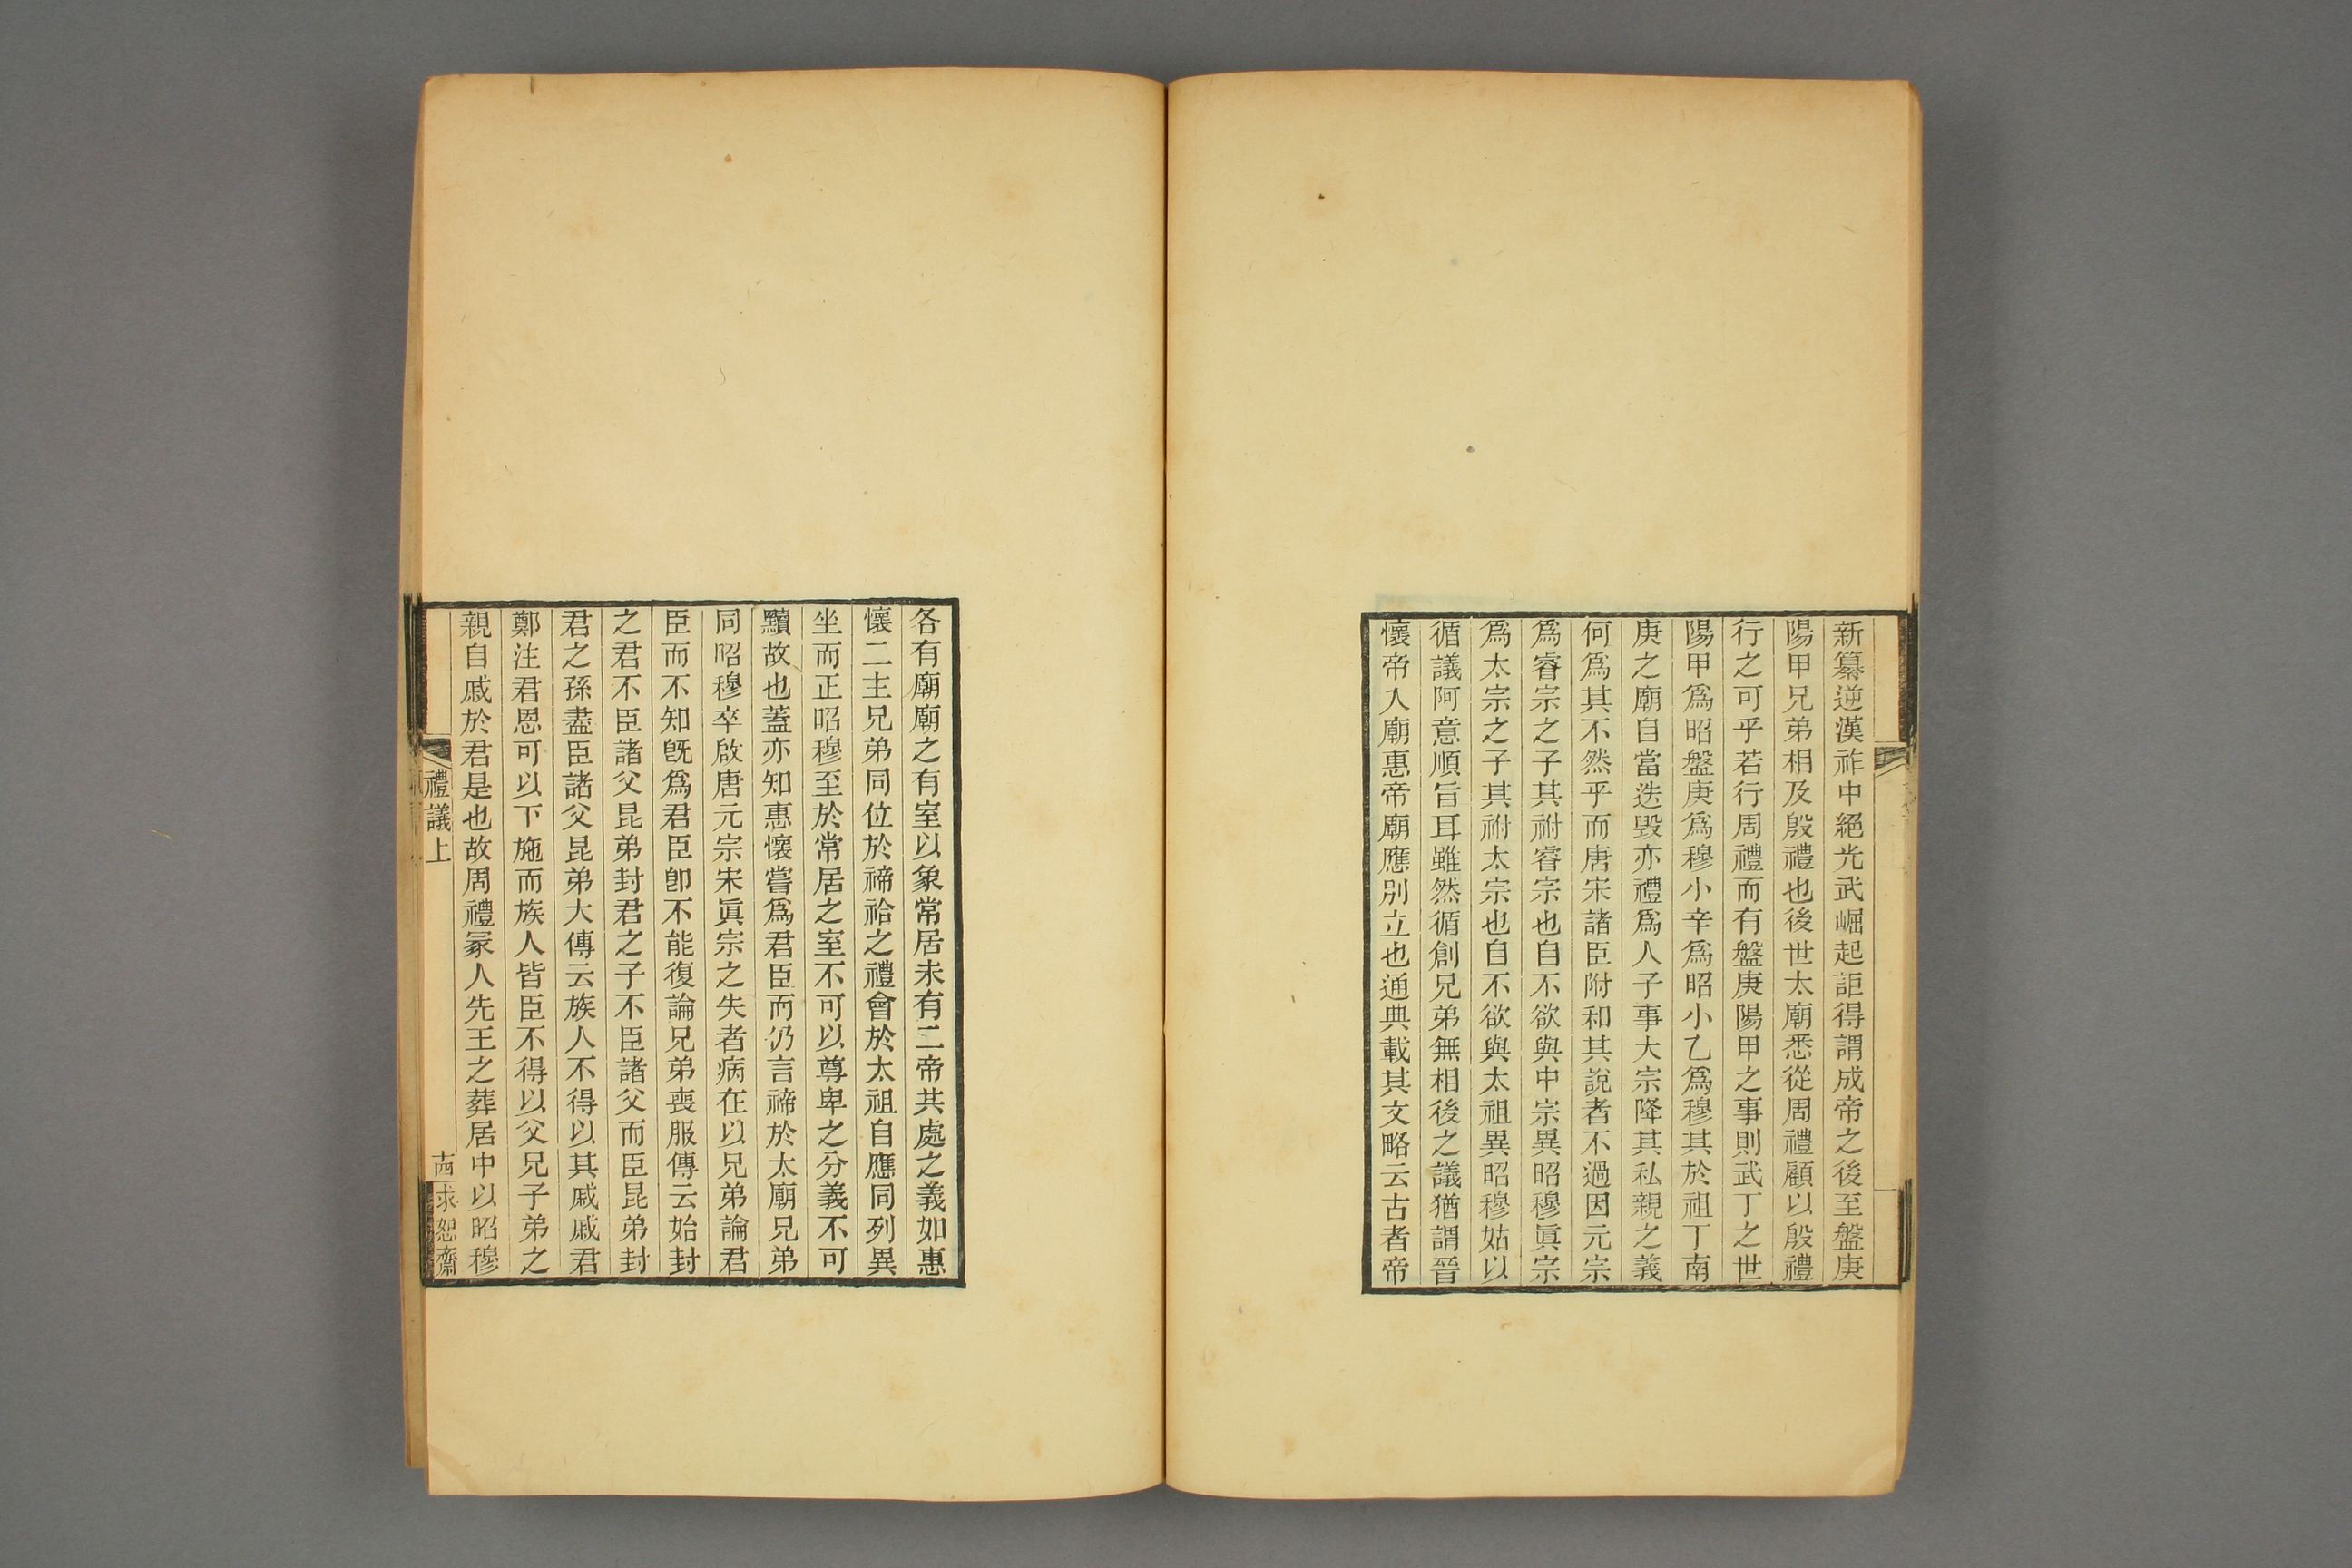 新纂逆漢祚中絕光武崛起詎得謂成帝之後至盤庚
陽甲兄弟相及殷禮也後世太廟悉從周禮顧以殷禮
行之可乎若行周禮而有盤庚陽甲之事則武丁之世
陽甲爲昭盤庚爲穆小辛爲昭小乙爲穆其於祖丁南
庚之廟自當迭毀亦禮爲人子事大宗降其私親之義
何爲其不然乎而唐宋諸臣附和其說者不過因元宗
爲睿宗之子其祔睿宗也自不欲與中宗異昭穆眞宗
爲太宗之子其祔太宗也自不欲與太祖異昭穆姑以
循議阿意順旨耳雖然循創兄弟無相後之議猶謂晉
懷帝入廟惠帝廟應別立也通典載其文略云古者帝
各有廟廟之有室以象常居未有二帝共處之義如惠
懷二主兄弟同位於禘祫之禮會於太祖自應同列異
坐而正昭穆至於常居之室不可以尊卑之分義不可
黷故也蓋亦知惠懷嘗爲君臣而仍言禘於太廟兄弟
同昭穆卒啟唐元宗宋眞宗之失者病在以兄弟論君
臣而不知旣爲君臣卽不能復論兄弟喪服傳云始封
之君不臣諸父昆弟封君之子不臣諸父而臣昆弟封
君之孫盡臣諸父昆弟大傳云族人不得以其戚戚君
鄭注君恩可以下施而族人皆臣不得以父兄子弟之
親自戚於君是也故周禮冢人先王之葬居中以昭穆
禮議上
十四
求恕齋